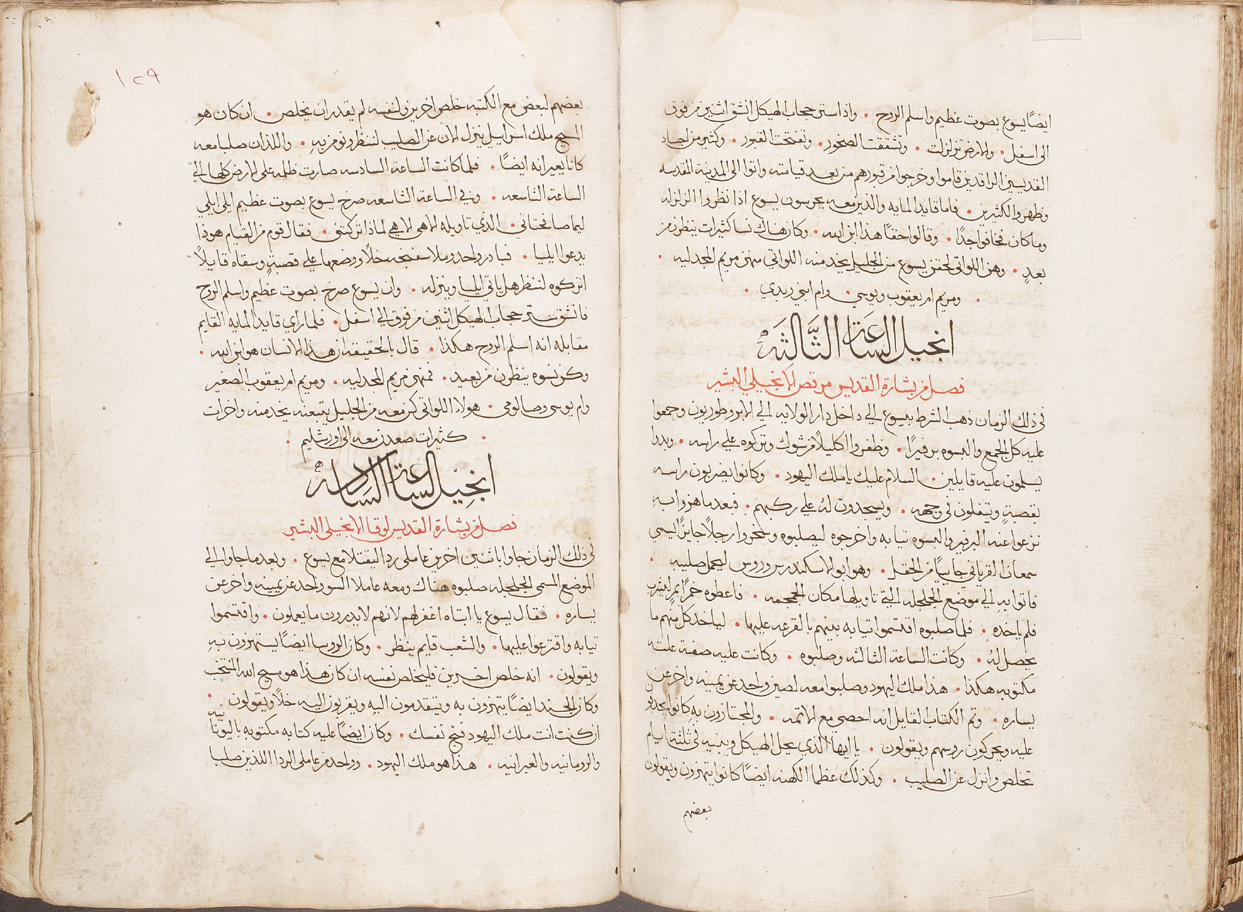 ايضًا يسوع بصوت عظيم واسلم الروح • واذا ستر حجاب الهيكل انشق اثنين من فوق
الى اسفل • والارض تزلزلت • وتشققت الصخور • وتفتحت القبور • وكثير من اجساد
القديسين الراقدين قاموا وخرجوا من قبورهم من بعد قيامته واتوا الى المدينة المقدسه
وظهروا لكثيرين • فاما قايد المايه والذين معه يحرسون يسوع اذا نظروا الزلزله
وما كان خافوا جدًا • وقالوا حقًا هذا ابن الله • وكان هناك نسا كثيرات ينظرن من
بعدٍ • وهن اللواتي لحقن يسوع من الجليل يخدمنه اللواتي منهن مريم المجدليه •
• ومريم ام يعقوب ويوسى • وام ابني زبدي •
انجيل الساعة الثالثه
فصل من بشارة القديس مرقص الانجيلي البشير
في ذلك الزمان ذهب الشرط بيسوع الى داخل دار الولايه الى الابروطوريون وجمعوا
عليه كل الجمع والبسوه برفيرًا • وظفروا اكليلًا من شوك وتركوه على راسه • وبدوا
يسلمون عليه قايلين • السلام عليك يا ملك اليهود • وكانوا يضربون راسه
بقصبةٍ ويتفلون في وجهه • ويسجدون له على ركبهم • فبعدما هزوا به
نزعوا عنه البرفير والبسوه ثيابه واخرجوه ليصلبوه وسخروا رجلًا جايزًا يسمى
سمعان القرياني جاييًا من الحقل • وهو ابو الاسكندرس وروفس ليحمل صليبه •
فاتوا به الى موضع الجلجله التي تاويلها مكان الجمجمه • فاعطوه خمرًا ليشرب
فلم ياخذه • فلما صلبوه اقتسموا ثيابه بينهم بالقرعه عليها • لياخذ كل منهم ما
يحصل له • وكانت الساعة الثالثه وصلبوه • وكانت عليه صفة علته
مكتوبه هكذا • هذا ملك اليهود وصلبوا معه لصين واحد عن يمينه واخر عن
يساره • وتم الكتاب القايل انه احصي مع الاثمه • والمجتازون به كانوا يجدفون
عليه ويحركون روسهم ويقولون • يا ايها الذي يحل الهيكل ويبنيه في ثلثة ايام
تخلص وانزل عن الصليب • وكذلك عظما الكهنه ايضًا كانوا يتهزون ويقولون
بعضهم
١٢٩
بعضهم لبعض مع الكتبه خلص اخرين ونفسه لم يقدر ان يخلص • ان كان هو
المسيح ملك اسرايل ينزل الان عن الصليب لننظر ونومن به • واللذان صلبا معه
كانا يعيرانه ايضًا • فلما كانت الساعة السادسه صارت ظلمه على الارض كلها الى
الساعة التاسعه • وفي الساعة التاسعه صرخ يسوع بصوت عظيم ايلي ايلي
ليما صافختاني • الذي تاويله الاهي الاهي لماذا تركتني • فقال قوم من القيام هوذا
يدعو ايليا • فبادر واحد وملا سفنجه خلًا ووضعها على قصبةٍ وسقاه قايلًا
اتركوه لننظر هل ياتي ايليا وينزله • وان يسوع صرخ بصوت عظيم واسلم الروح
فانشق ستر حجاب الهيكل اثنين من فوق الى اسفل • فلما راى قايد المايه القايم
مقابله انه اسلم الروح هكذا • قال بالحقيقه ان هذا الانسان هو ابن الله •
وكن نسوه ينظرن من بعيد • منهن مريم المجدليه • ومريم ام يعقوب الصغير
وام يوسى وصالومي • هولاء اللواتي كن معه من الجليل يتبعنه يخدمنه واخرات
• كثيرات صعدن معه الى اورشليم •
انجيل الساعة السادسه
فصل من بشارة القديس لوقا الانجيلي البشير
في ذلك الزمان جاوا باثنين اخرين عاملي ردا ليقتلا مع يسوع • وبعد ما جاوا الى
الموضع المسمى الجلجله صلبوه هناك ومعه عاملا السو واحد عن يمينه واخر عن
يساره • فقال يسوع يا ابتاه اغفر لهم لانهم لا يدرون ما يعملون • واقتسموا
ثيابه واقترعوا عليها • والشعب قايم ينظر • وكان الروسا ايضًا يستهزون به
ويقولون • انه خلص اخرين فليخلص نفسه ان كان هذا هو مسيح الله المنتخب
وكان الجند ايضًا يتهزون به ويتقدمون اليه ويقربون اليه خلًا ويقولون •
ان كنت انت ملك اليهود فنج نفسك • وكان ايضًا عليه كتابه مكتوبه باليونانيه
والرومانيه والعبرانيه • هذا هو ملك اليهود • وواحد من عاملي الردا اللذين صلبا